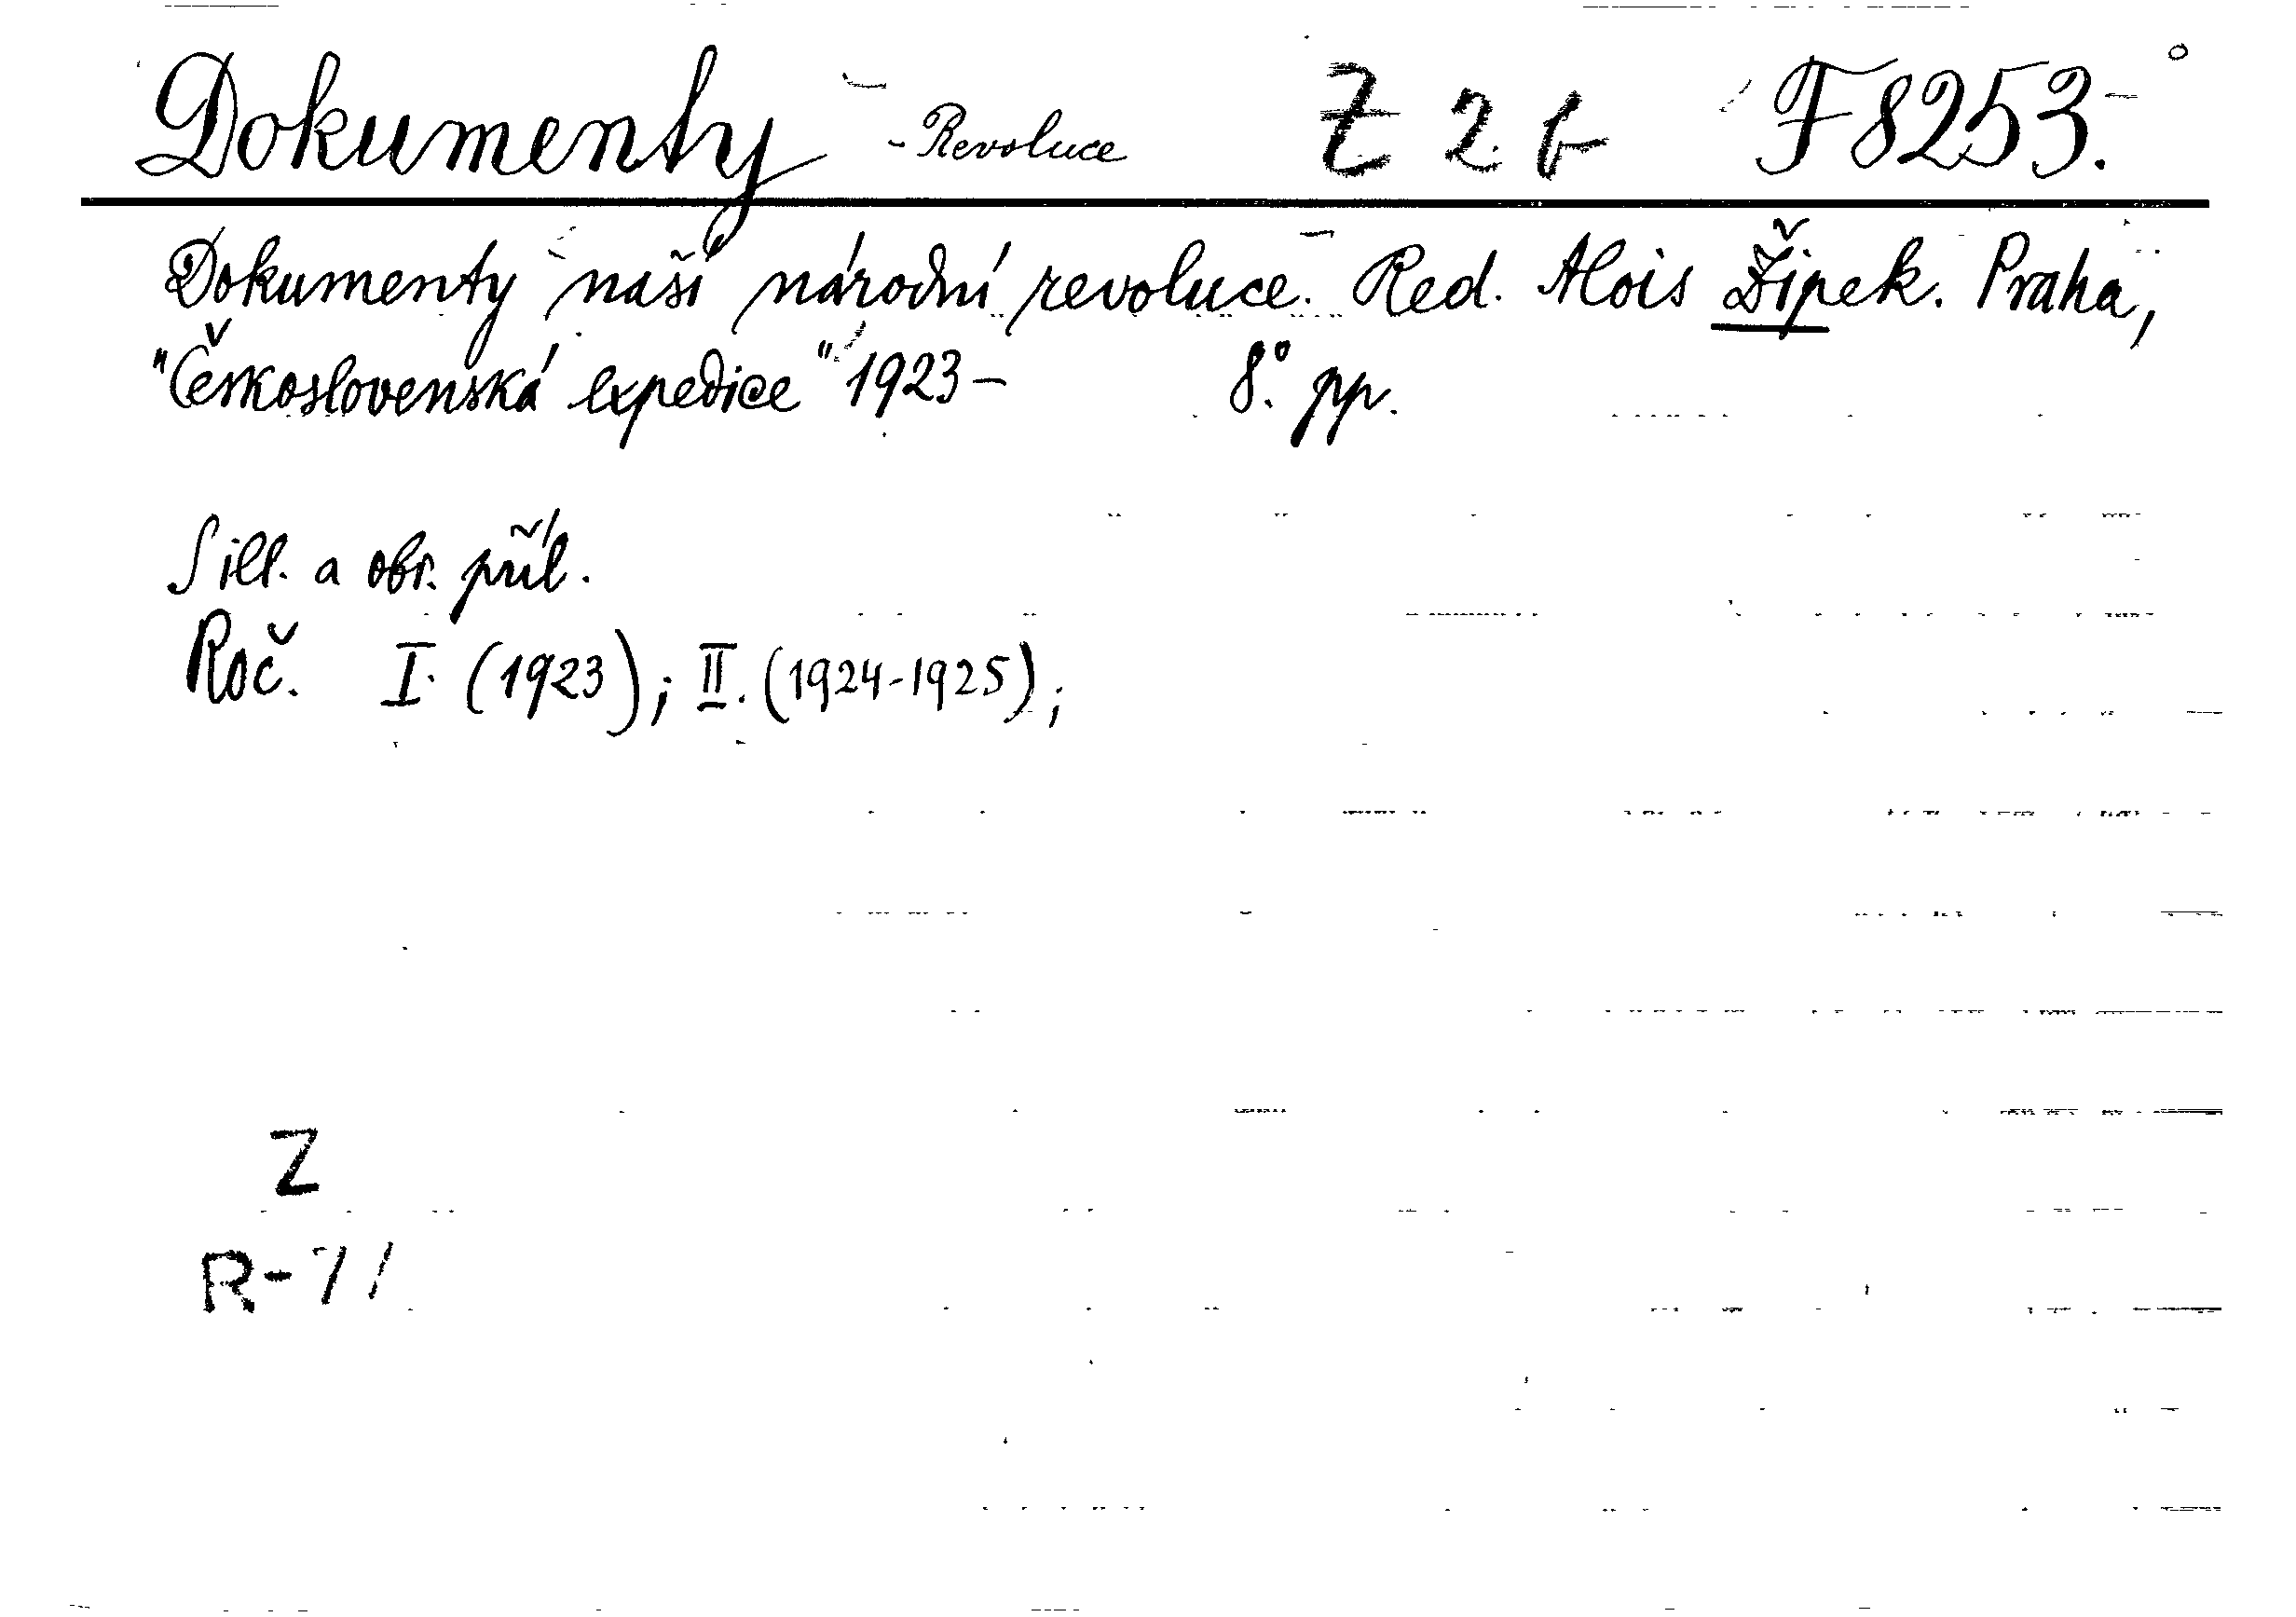 Dokumenty - Revoluce Z 2 b F 8253.
Dokumenty naší národní revoluce. Red. Alois Žipek. Praha,
"Československá expedice" 1923- 8° pp.
S ill. a obr. příl.
Roč. I. (1923); II. (1924-1925);
Z
R-71